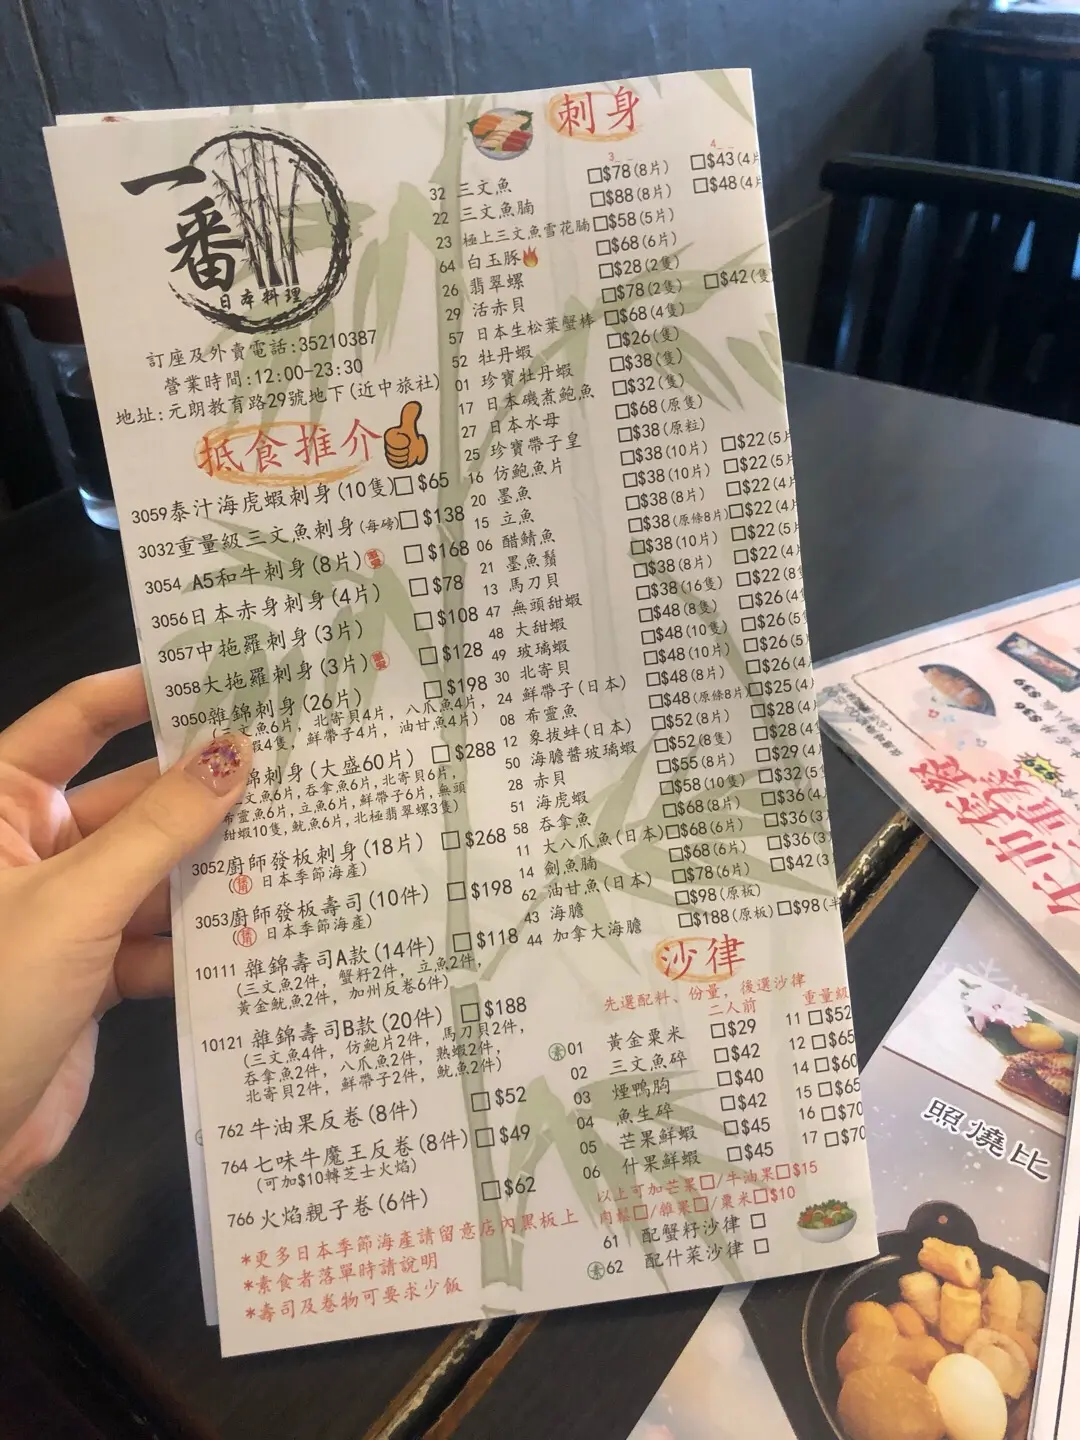 一番
日本料理
訂座及外賣電話:35210387
營業時間:12:00-23:30
地址:元朗教育路29號地下(近中旅社)
抵食推介
3059泰汁海虎蝦刺身(10隻)□ $65
3032重量級三文魚刺身(每磅)□ $138
3054 A5和牛刺身(8片) □ $168
3056日本赤身刺身(4片) □ $78
3057中拖羅刺身(3片) □ $108
3058大拖羅刺身(3片) □ $128
3050雜錦刺身(26片) □ $198
(三文魚6片, 北寄貝4片, 八爪魚4片,
蝦4隻, 鮮帶子4片, 油甘魚4片)
錦刺身(大盛60片) □ $288
文魚6片, 吞拿魚6片, 北寄貝6片,
希靈魚6片, 立魚6片, 鮮帶子6片, 無頭
甜蝦10隻, 魷魚6片, 北極翡翠螺3隻)
3052廚師發板刺身(18片) □ $268
(精 日本季節海產)
3053廚師發板壽司(10件) □ $198
(精 日本季節海產)
10111 雜錦壽司A款(14件) □ $118
(三文魚2件, 蟹籽2件, 立魚2件,
黃金魷魚2件, 加州反卷6件)
10121 雜錦壽司B款(20件) □ $188
(三文魚4件, 仿鮑片2件, 馬刀貝2件,
吞拿魚2件, 八爪魚2件, 熟蝦2件,
北寄貝2件, 鮮帶子2件, 魷魚2件)
762 牛油果反卷(8件) □ $52
764 七味牛魔王反卷(8件) □ $49
(可加$10轉芝士火焰)
766 火焰親子卷(6件) □ $62
*更多日本季節海產請留意店內黑板上
*素食者落單時請說明
*壽司及卷物可要求少飯
刺身
3_ _ 4_ _
32 三文魚 □$78(8片) □$43(4片
22 三文魚腩 □$88(8片) □$48(4片
23 極上三文魚雪花腩 □$58(5片)
64 白玉豚 □$68(6片)
26 翡翠螺 □$28(2隻)
29 活赤貝 □$78(2隻) □$42(隻
57 日本生松葉蟹棒 □$68(4隻)
52 牡丹蝦 □$26(隻)
01 珍寶牡丹蝦 □$38(隻)
17 日本磯煮鮑魚 □$32(隻)
27 日本水母 □$68(原隻)
25 珍寶帶子皇 □$38(原粒)
16 仿鮑魚片 □$38(10片) □$22(5片
20 墨魚 □$38(10片) □$22(5片
15 立魚 □$38(8片) □$22(4片
06 醋鯖魚 □$38(原條8片) □$22(4片
21 墨魚鬚 □$38(10片) □$22(5片
13 馬刀貝 □$38(8片) □$22(4片
47 無頭甜蝦 □$38(16隻) □$22(8隻
48 大甜蝦 □$48(8隻) □$26(4
49 玻璃蝦 □$48(10隻) □$26(5
30 北寄貝 □$48(10片) □$26(5
24 鮮帶子(日本) □$48(8片) □$26(4
08 希靈魚 □$48(原條8片) □$25(4
12 象拔蚌(日本) □$52(8片) □$28(4
50 海膽醬玻璃蝦 □$52(8隻) □$28(4
28 赤貝 □$55(8片) □$29(4
51 海虎蝦 □$58(10隻) □$32(5
58 吞拿魚 □$68(8片) □$36(4
11 大八爪魚(日本) □$68(6片) □$36(3
14 劍魚腩 □$68(6片) □$36(3
62 油甘魚(日本) □$78(6片) □$42(3
43 海膽 □$98(原板)
44 加拿大海膽 □$188(原板) □$98(半
沙律
先選配料、份量, 後選沙律
二人前 重量級
素01 黃金粟米 □$29 11 □$52
02 三文魚碎 □$42 12 □$65
03 煙鴨胸 □$40 14 □$60
04 魚生碎 □$42 15 □$65
05 芒果鮮蝦 □$45 16 □$70
06 什果鮮蝦 □$45 17 □$70
以上可加芒果□/牛油果□$15
肉鬆□/雜果□/粟米□$10
61 配蟹籽沙律 □
素62 配什菜沙律 □
$39
$36
午市套餐
照燒比